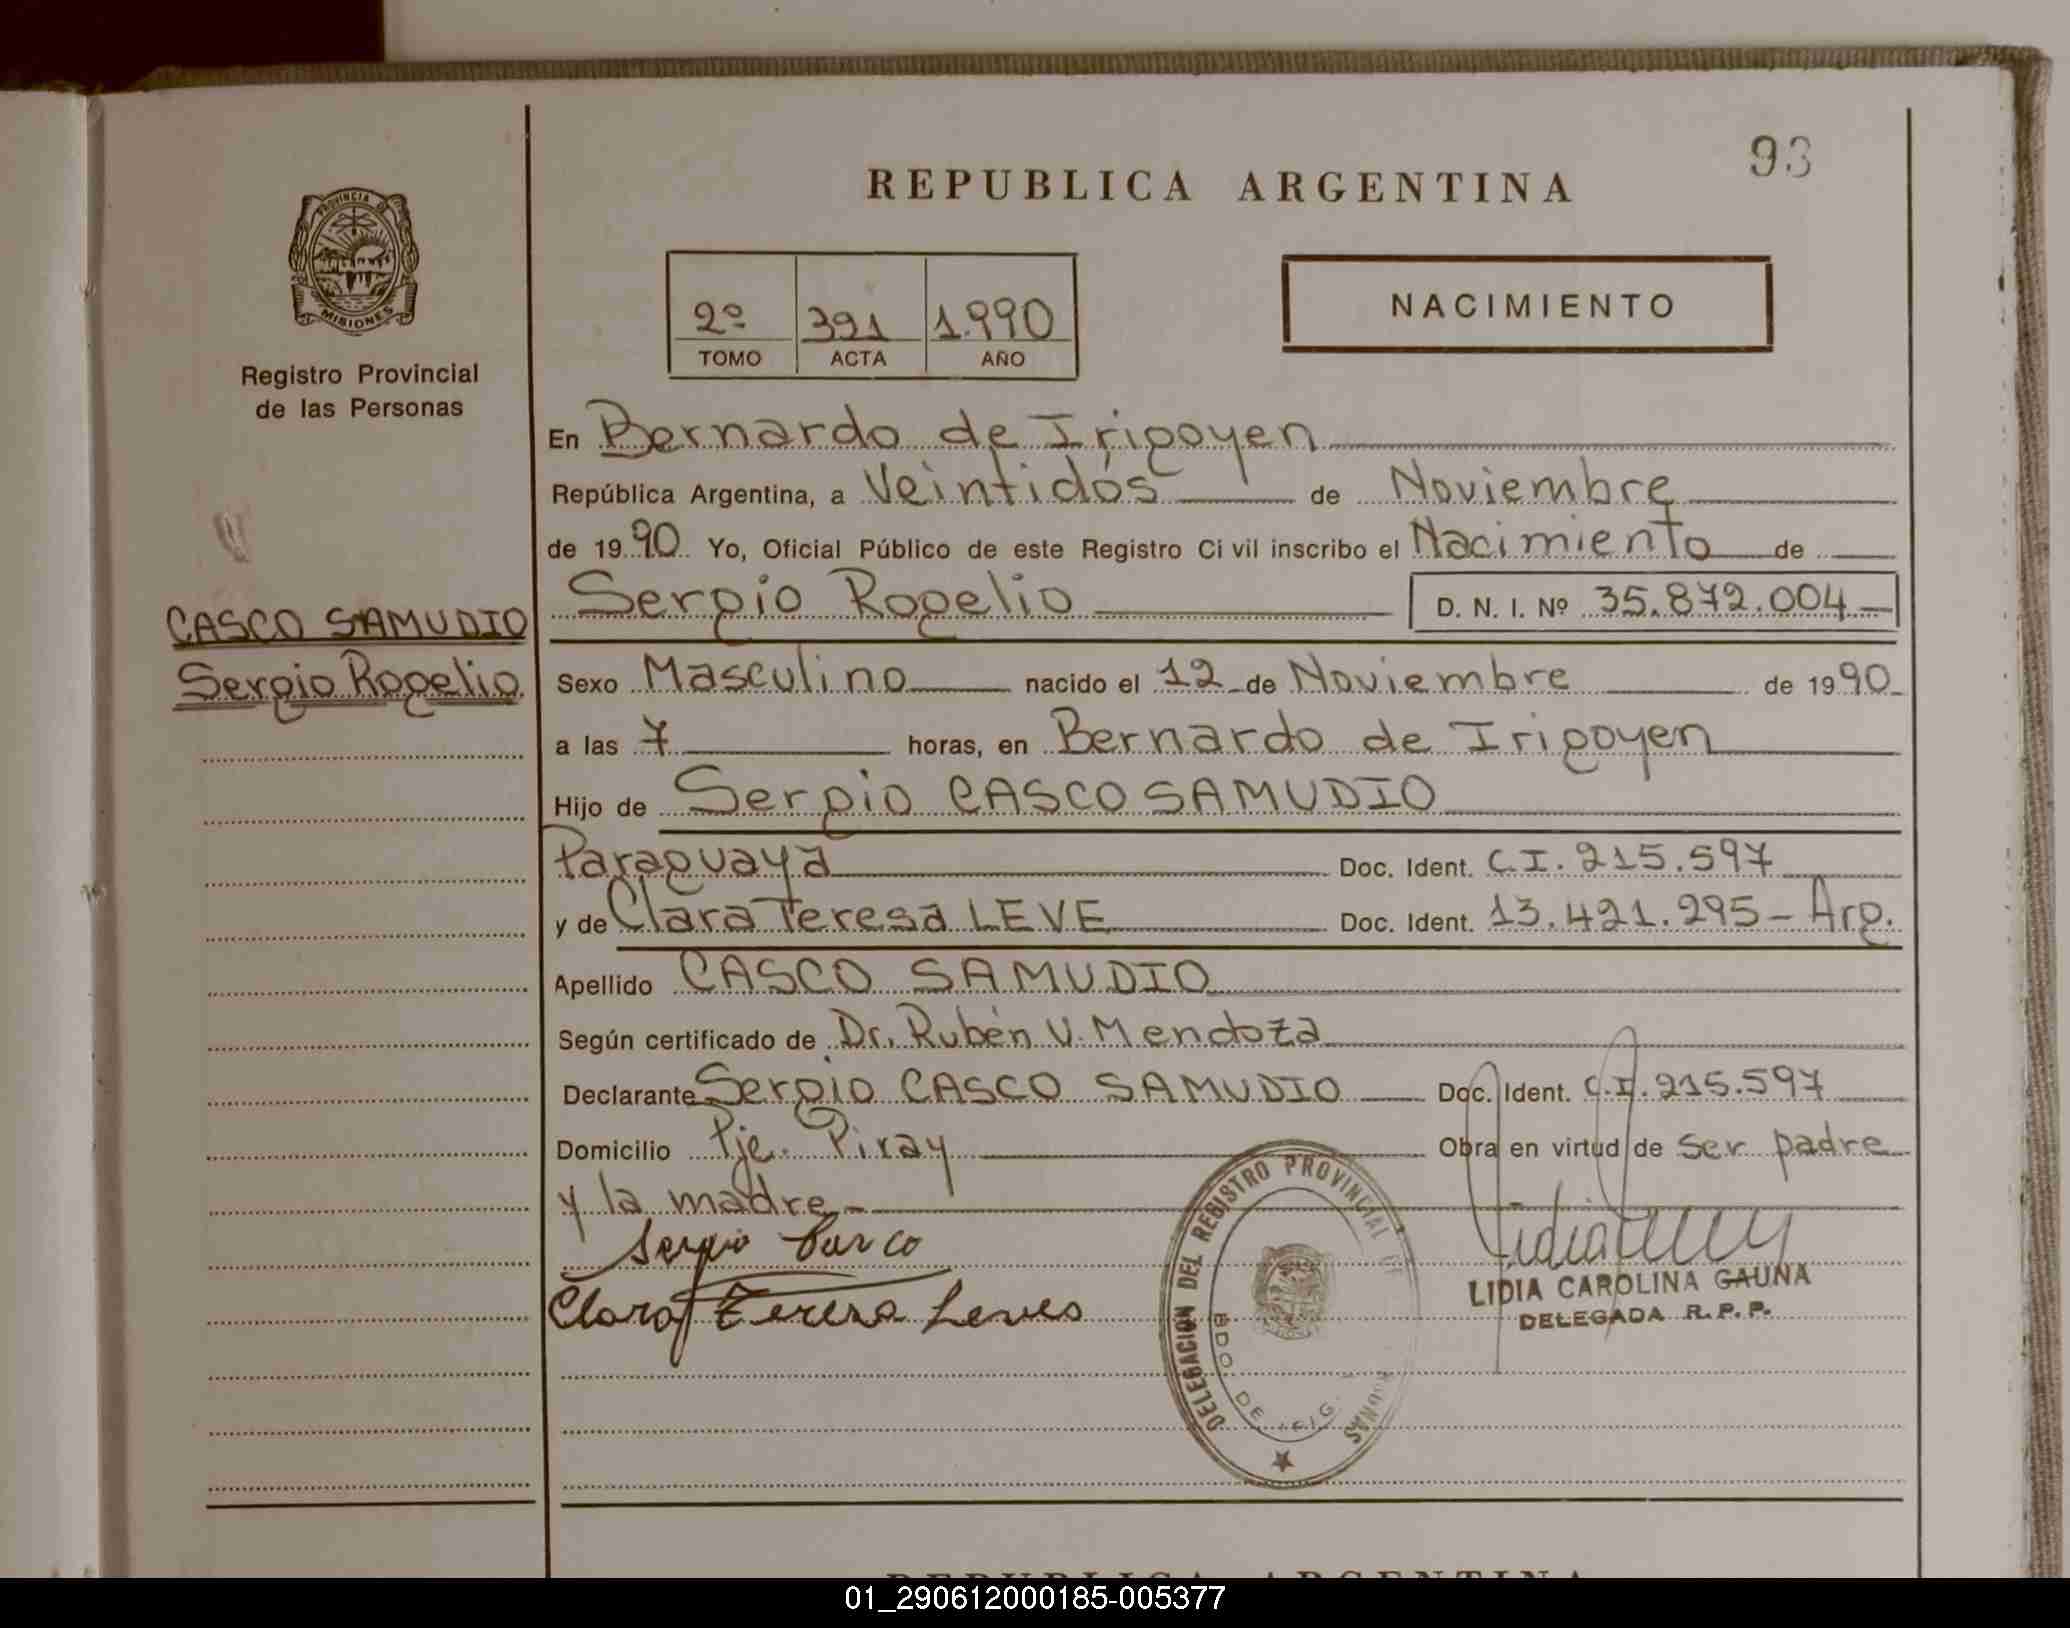 93
REPUBLICA ARGENTINA
PROVINCIA D
MISIONES
Registro Provincial
de las Personas
2º 391 1.990
TOMO ACTA AÑO
NACIMIENTO
En Bernardo de Irigoyen
República Argentina, a Veintidós de Noviembre
de 1990 Yo, Oficial Público de este Registro Civil inscribo el Nacimiento de
CASCO SAMUDIO
Sergio Rogelio
Sergio Rogelio D. N. I. Nº 35.872.004
Sexo Masculino nacido el 12 de Noviembre de 1990
a las 7 horas, en Bernardo de Irigoyen
Hijo de Sergio CASCO SAMUDIO
Paraguaya Doc. Ident. C.I. 215.597
y de Clara Teresa LEVE Doc. Ident. 13.421.295 - Arg.
Apellido CASCO SAMUDIO
Según certificado de Dr. Rubén V. Mendoza
Declarante Sergio CASCO SAMUDIO Doc. Ident. C.I. 215.597
Domicilio Pje. Piray Obra en virtud de ser padre
y la madre.-
Sergio Casco
Clara Teresa Leves
DELEGACION DEL REGISTRO PROVINCIAL DE
BDO DE IRIG.
LIDIA CAROLINA GAUNA
DELEGADA R. P. P.
REPUBLICA ARGENTINA
01_290612000185-005377